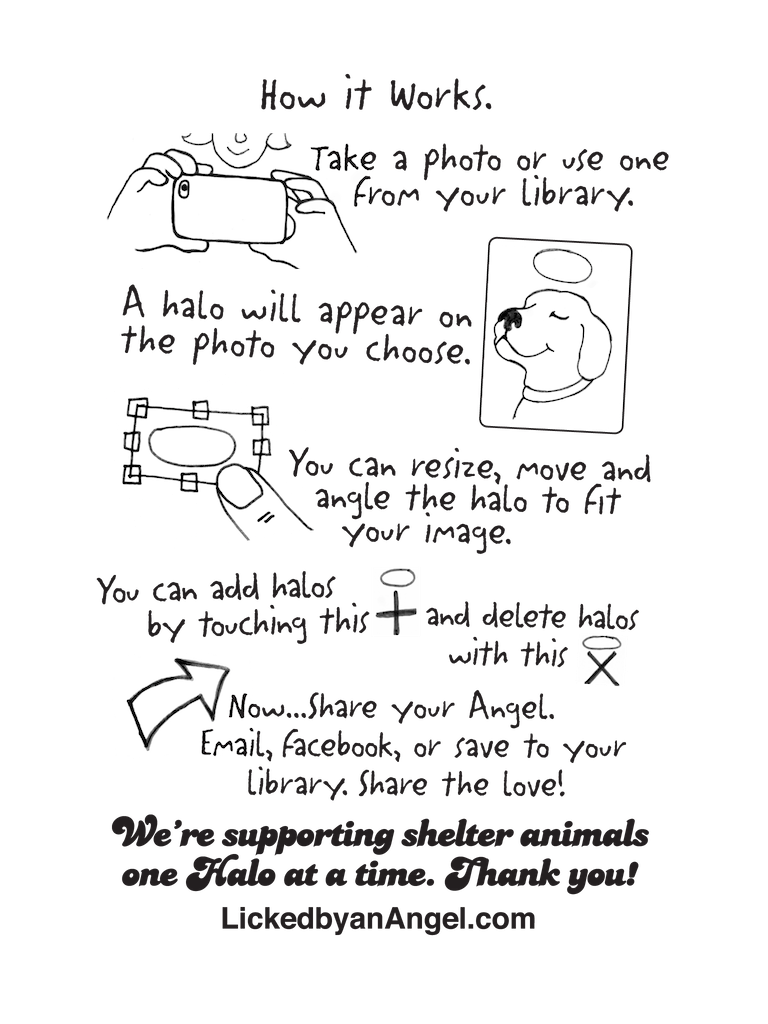 How it Works.
Take a photo or use one
from your library.
A halo will appear on
the photo you choose.
You can resize, move and
angle the halo to fit
your image.
You can add halos
by touching this + and delete halos
with this X
Now...Share your Angel.
Email, Facebook, or save to your
library. Share the love!
We're supporting shelter animals
one Halo at a time. Thank you!
LickedbyanAngel.com